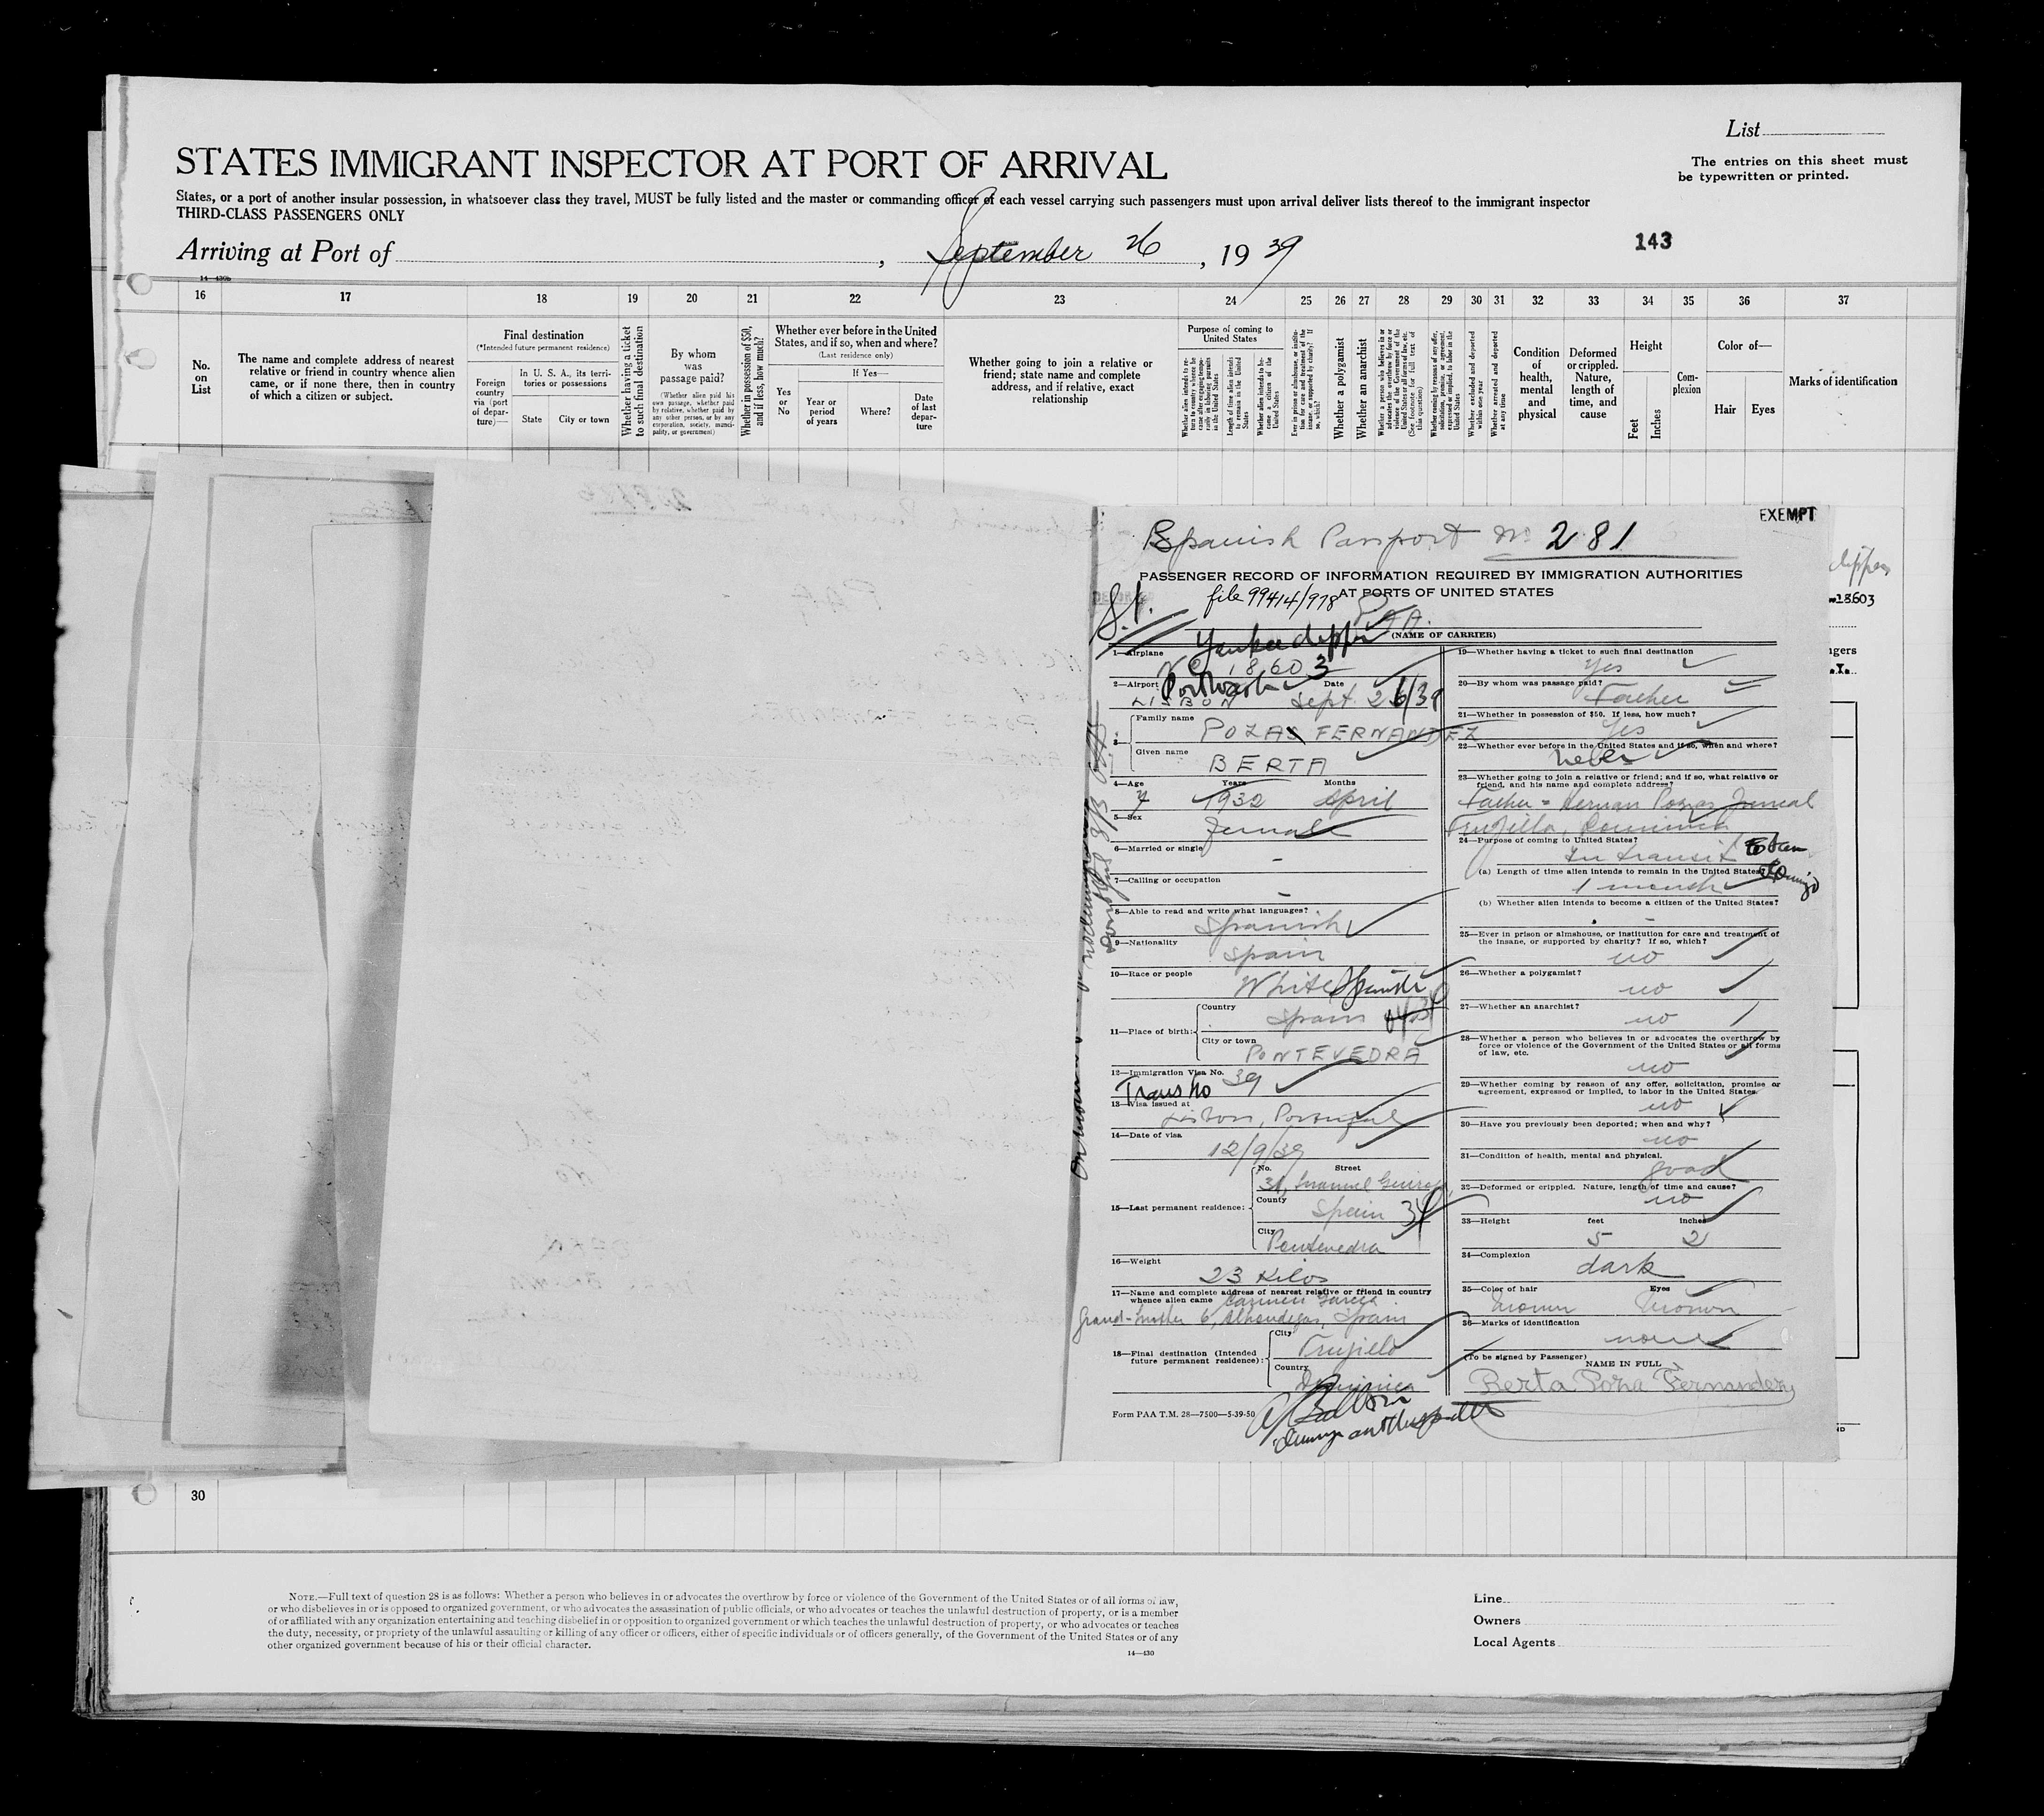 List
STATES IMMIGRANT INSPECTOR AT PORT OF ARRIVAL
The entries on this sheet must
be typewritten or printed.
States, or a port of another insular possession, in whatsoever class they travel, MUST be fully listed and the master or commanding officer of each vessel carrying such passengers must upon arrival deliver lists thereof to the immigrant inspector
THIRD-CLASS PASSENGERS ONLY
Arriving at Port of , September 26 , 1939
143
14—430b
16 17 18 19 20 21 22 23 24 25 26 27 28 29 30 31 32 33 34 35 36 37
No. on List
The name and complete address of nearest
relative or friend in country whence alien
came, or if none there, then in country
of which a citizen or subject.
Final destination
(*Intended future permanent residence)
Foreign
country
via (port
of depar-
ture)—
In U. S. A., its terri-
tories or possessions
State
City or town
Whether having a ticket
to such final destination
By whom
was
passage paid?
(Whether alien paid his
own passage, whether paid
by relative, whether paid by
any other person, or by any
corporation, society, munici-
pality, or government)
Whether in possession of $50,
and if less, how much?
Whether ever before in the United
States, and if so, when and where?
(Last residence only)
Yes
or
No
If Yes—
Year or
period
of years
Where?
Date
of last
depar-
ture
Whether going to join a relative or
friend; state name and complete
address, and if relative, exact
relationship
Purpose of coming to
United States
Whether alien intends to re-
turn to country whence he
came after engaging tempo-
rarily in laboring pursuits
in the United States
Length of time alien intends
to remain in the United
States
Whether alien intends to be-
come a citizen of the
United States
Ever in prison or almshouse, or institu-
tion for care and treatment of the
insane, or supported by charity? If
so, which?
Whether a polygamist
Whether an anarchist
Whether a person who believes in or
advocates the overthrow by force or
violence of the Government of the
United States or all forms of law, etc.
(See footnote for full text of
this question)
Whether coming by reason of any offer,
solicitation, promise, or agreement,
expressed or implied, to labor in the
United States
Whether excluded and deported
within one year
Whether arrested and deported
at any time
Condition
of
health,
mental
and
physical
Deformed
or crippled.
Nature,
length of
time, and
cause
Height
Feet
Inches
Com-
plexion
Color of—
Hair Eyes
Marks of identification
EXEMPT
Spanish Passport No 281
PASSENGER RECORD OF INFORMATION REQUIRED BY IMMIGRATION AUTHORITIES
AT PORTS OF UNITED STATES
file 99414/978
P.A.A.
(NAME OF CARRIER)
1—Airplane Yankee Clipper
NC 18603
2—Airport Port Wash Date
LISBON Sept. 26/39
3— Family name POZAS FERNANDEZ
Given name BERTA
4—Age Years Months
7 1932 April
5—Sex Female
6—Married or single -
7—Calling or occupation -
8—Able to read and write what languages?
Spanish
9—Nationality Spain
10—Race or people White Spanish
11—Place of birth: Country Spain
City or town PONTEVEDRA
12—Immigration Visa No. 39
Trans No
13—Visa issued at Lisbon, Portugal
14—Date of visa 12/9/39
15—Last permanent residence: No. Street
31,
County Spain
City Pontevedra
16—Weight 23 Kilos
17—Name and complete address of nearest relative or friend in country
whence alien came Carmen Garcia
Grand-mother 6, Alhondigas, Spain
18—Final destination (Intended
future permanent residence): City Trujillo
Country Dominica
Form PAA T.M. 28—7500—5-39-50
19—Whether having a ticket to such final destination
Yes
20—By whom was passage paid?
Father
21—Whether in possession of $50. If less, how much?
Yes
22—Whether ever before in the United States and if so, when and where?
never
23—Whether going to join a relative or friend; and if so, what relative or
friend, and his name and complete address?
Father = Herman Pozas
Trujillo, Dominica
24—Purpose of coming to United States?
In transit to San
Domingo
(a) Length of time alien intends to remain in the United States?
1 month
(b) Whether alien intends to become a citizen of the United States?
-
25—Ever in prison or almshouse, or institution for care and treatment of
the insane, or supported by charity? If so, which?
no
26—Whether a polygamist?
no
27—Whether an anarchist?
no
28—Whether a person who believes in or advocates the overthrow by
force or violence of the Government of the United States or all forms
of law, etc.
no
29—Whether coming by reason of any offer, solicitation, promise or
agreement, expressed or implied, to labor in the United States.
no
30—Have you previously been deported; when and why?
no
31—Condition of health, mental and physical.
good
32—Deformed or crippled. Nature, length of time and cause?
no
33—Height feet inches
5 2
34—Complexion
dark
35—Color of hair Eyes
brown brown
36—Marks of identification
none
(To be signed by Passenger)
NAME IN FULL
Berta Poza Fernandez
18603
30
NOTE.—Full text of question 28 is as follows: Whether a person who believes in or advocates the overthrow by force or violence of the Government of the United States or of all forms of law,
or who disbelieves in or is opposed to organized government, or who advocates the assassination of public officials, or who advocates or teaches the unlawful destruction of property, or is a member
of or affiliated with any organization entertaining and teaching disbelief in or opposition to organized government or which teaches the unlawful destruction of property, or who advocates or teaches
the duty, necessity, or propriety of the unlawful assaulting or killing of any officer or officers, either of specific individuals or of officers generally, of the Government of the United States or of any
other organized government because of his or their official character.
14—430
Line
Owners
Local Agents